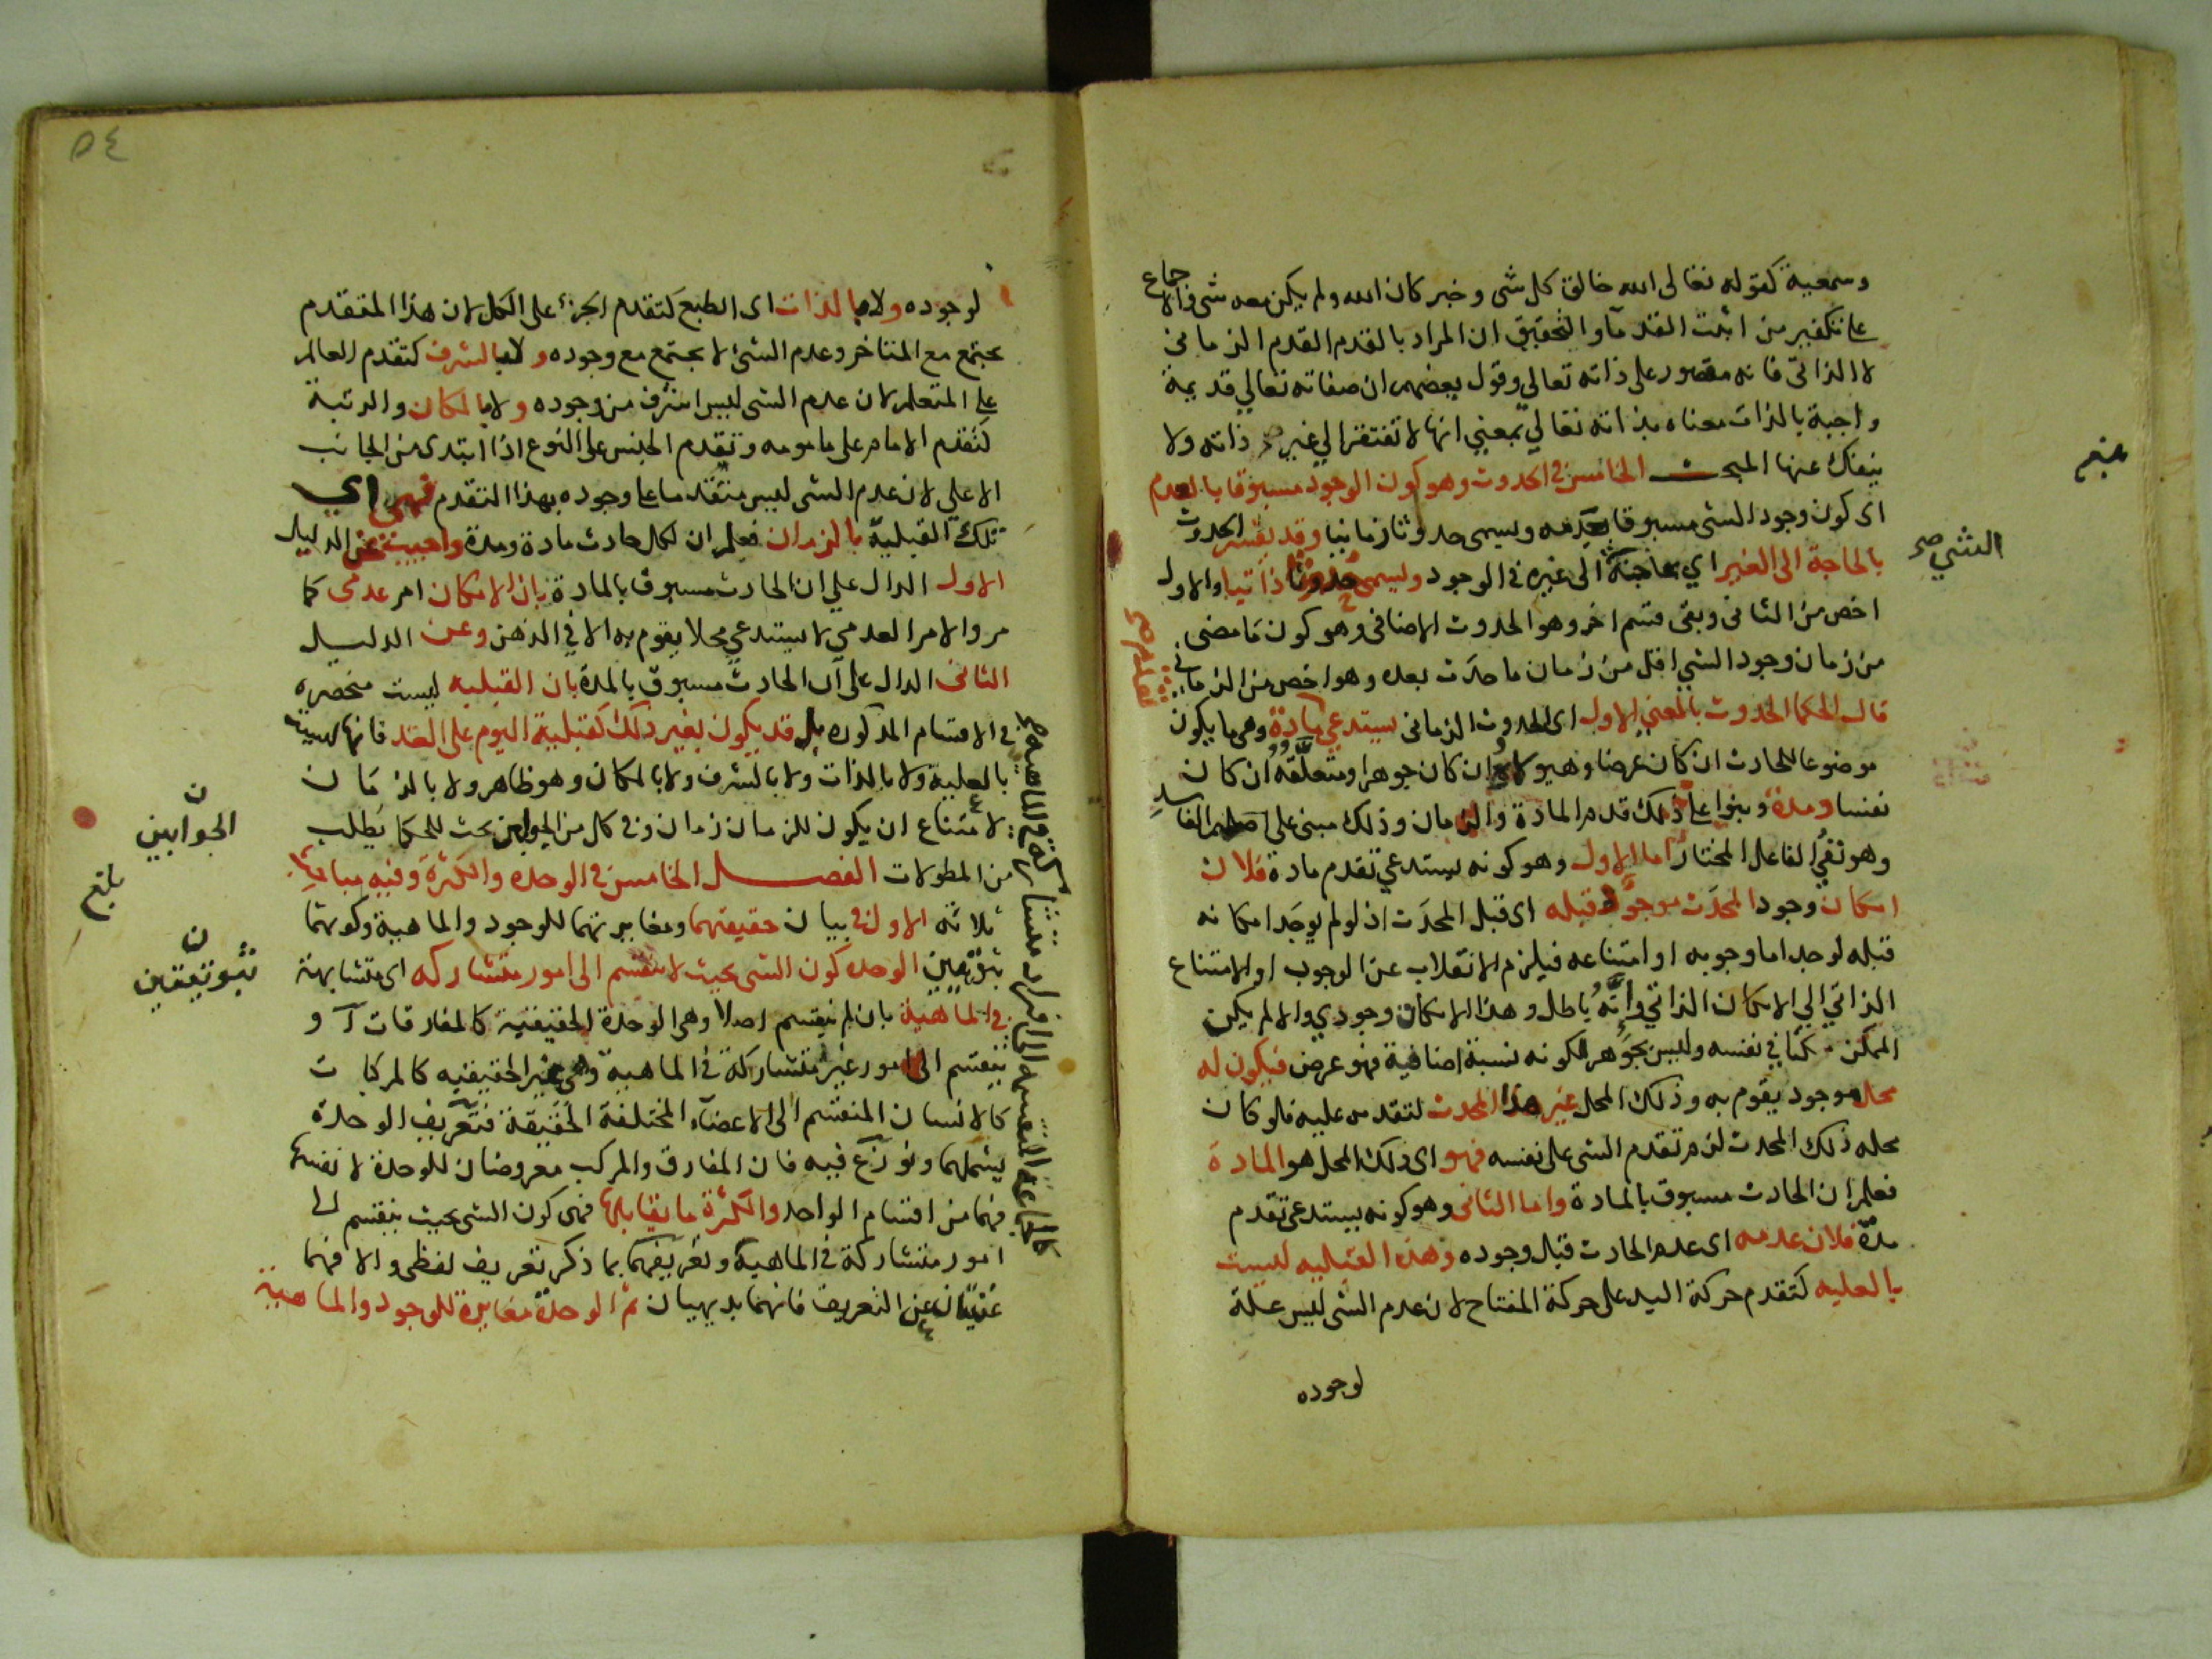 وسمعية كقوله تعالى الله خالق كل شى وخبر كان الله ولم يكن معه شى والاجماع
على تكفير من اثبت القدما والتحقيق ان المراد بالقدم القدم الزمانى
لا الذاتى فانه مقصور على ذاته تعالي وقول بعضهم ان صفاته تعالي قديمة
واجبة بالذات معناه بذاته تعالي بمعني انها لا تفتقر الي غير ذاته ولا
ينفك عنها المبحث الخامس فى الحدوث وهو كون الوجود مسبوقا بالعدم
اى كون وجود الشى مسبوقا بعدمه ويسمى حدوثا زمانيا وقد يفسر الحدوث
بالحاجة الى الغير اي بحاجته الى غيره فى الوجود ويسمى حدوثا ذاتيا والاول
اخص من الثانى وبقى قسم اخر وهو الحدوث الاضافى وهو كون ما مضى
من زمان وجود الشي اقل من زمان ما حدث بعده وهو اخص من الزمانى
قال الحكما الحدوث بالمعني الاول اى الحدوث الزمانى يستدعي مادة وهى ما يكون
موضوعا للحادث ان كان عرضا وهيولاه ان كان جوهرا ومتعلقه ان كان
نفسا ومدة وبنوا على ذلك قدم المادة والزمان وذلك مبنى على اصلهم الفاسد
وهو نفي الفاعل المختار اما الاول وهو كونه يستدعي تقدم مادة فلان
امكان وجود المحدث موجود قبله اى قبل المحدث اذ لو لم يوجد امكانه
قبله لوجد اما وجوبه او امتناعه فيلزم الانقلاب عن الوجوب او الامتناع
الذاتي الي الامكان الذاتي وانه باطل وهذا الامكان وجودي والا لم يكن
الممكن ممكنا في نفسه وليس بجوهر لكونه نسبة اضافية فهو عرض فيكون له
محل موجود يقوم به وذلك المحل غير هذا المحدث لتقدمه عليه فلو كان
محله ذلك المحدث لزم تقدم الشى على نفسه فهو اى ذلك المحل هو المادة
فعلم ان الحادث مسبوق بالمادة واما الثانى وهو كونه يستدعى تقدم
مدة فلان عدمه اى عدم الحادث قبل وجوده وهذه القبليه ليست
بالعليه كتقدم حركة اليد على حركة المفتاح لان عدم الشى ليس علة
لوجوده
الشي صح
٥٤
لوجوده ولا بالذات اى الطبع كتقدم الجزء على الكل لان هذا المتقدم
يجتمع مع المتاخر وعدم الشئ لا يجتمع مع وجوده ولا بالشرف كتقدم العالم
على المتعلم لان عدم الشى ليس اشرف من وجوده ولا بالمكان والرتبة
كتقدم الامام على مامومه وتقدم الجنس على النوع اذا ابتدى من الجانب
الاعلي لان عدم الشى ليس متقدما على وجوده بهذا التقدم فهى اي
تلك القبلية بالزمان فعلم ان لكل حادث مادة ومدة واجيب عن الدليل
الاول الدال علي ان الحادث مسبوق بالمادة بان الامكان امر عدمى كما
مر والامر العدمي لا يستدعي محلا يقوم به الا في الذهن وعن الدليل
الثانى الدال على ان الحادث مسبوق بالمدة بان القبليه ليست منحصره
فى الاقسام المذكوره بل قد يكون بغير ذلك كقبلية اليوم على الغد فانها ليست
بالعلية ولا بالذات ولا بالشرف ولا بالمكان وهو ظاهر ولا بالزمان
لامتناع ان يكون للزمان زمان وفى كل من الجوابين بحث للحكما يطلب
من المطولات الفصل الخامس فى الوحده والكثرة وفيه مباحث
ثلاثه الاول فى بيان حقيقتهما ومغايرتهما للوجود والماهية وكونهما
ثبوتيين الوحده كون الشى بحيث لا ينقسم الى امور متشاركه اى متشابهة
فى الماهية بان لم ينقسم اصلا وهى الوحدة الحقيقية كالمفارقات او
ينقسم الى امور غير متشاركة في الماهية وهى غير الحقيقيه كالمركبات
كالانسان المنقسم الى الاعضاء المختلفة الحقيقة فتعريف الوحدة
يشملهما ونوزع فيه فان المفارق والمركب معروضان للوحدة لا نفسها
فهما من اقسام الواحد والكثرة ما يقابلها فهى كون الشى بحيث ينقسم الى
امور متشاركة فى الماهية وتعريفهما بما ذكر تعريف لفظى والا فهما
غنيان عن التعريف فانهما بديهيان ثم الوحدة مغايرة للوجود والماهية
ن
الجوابين
بلغ
ن
ثبوتيين